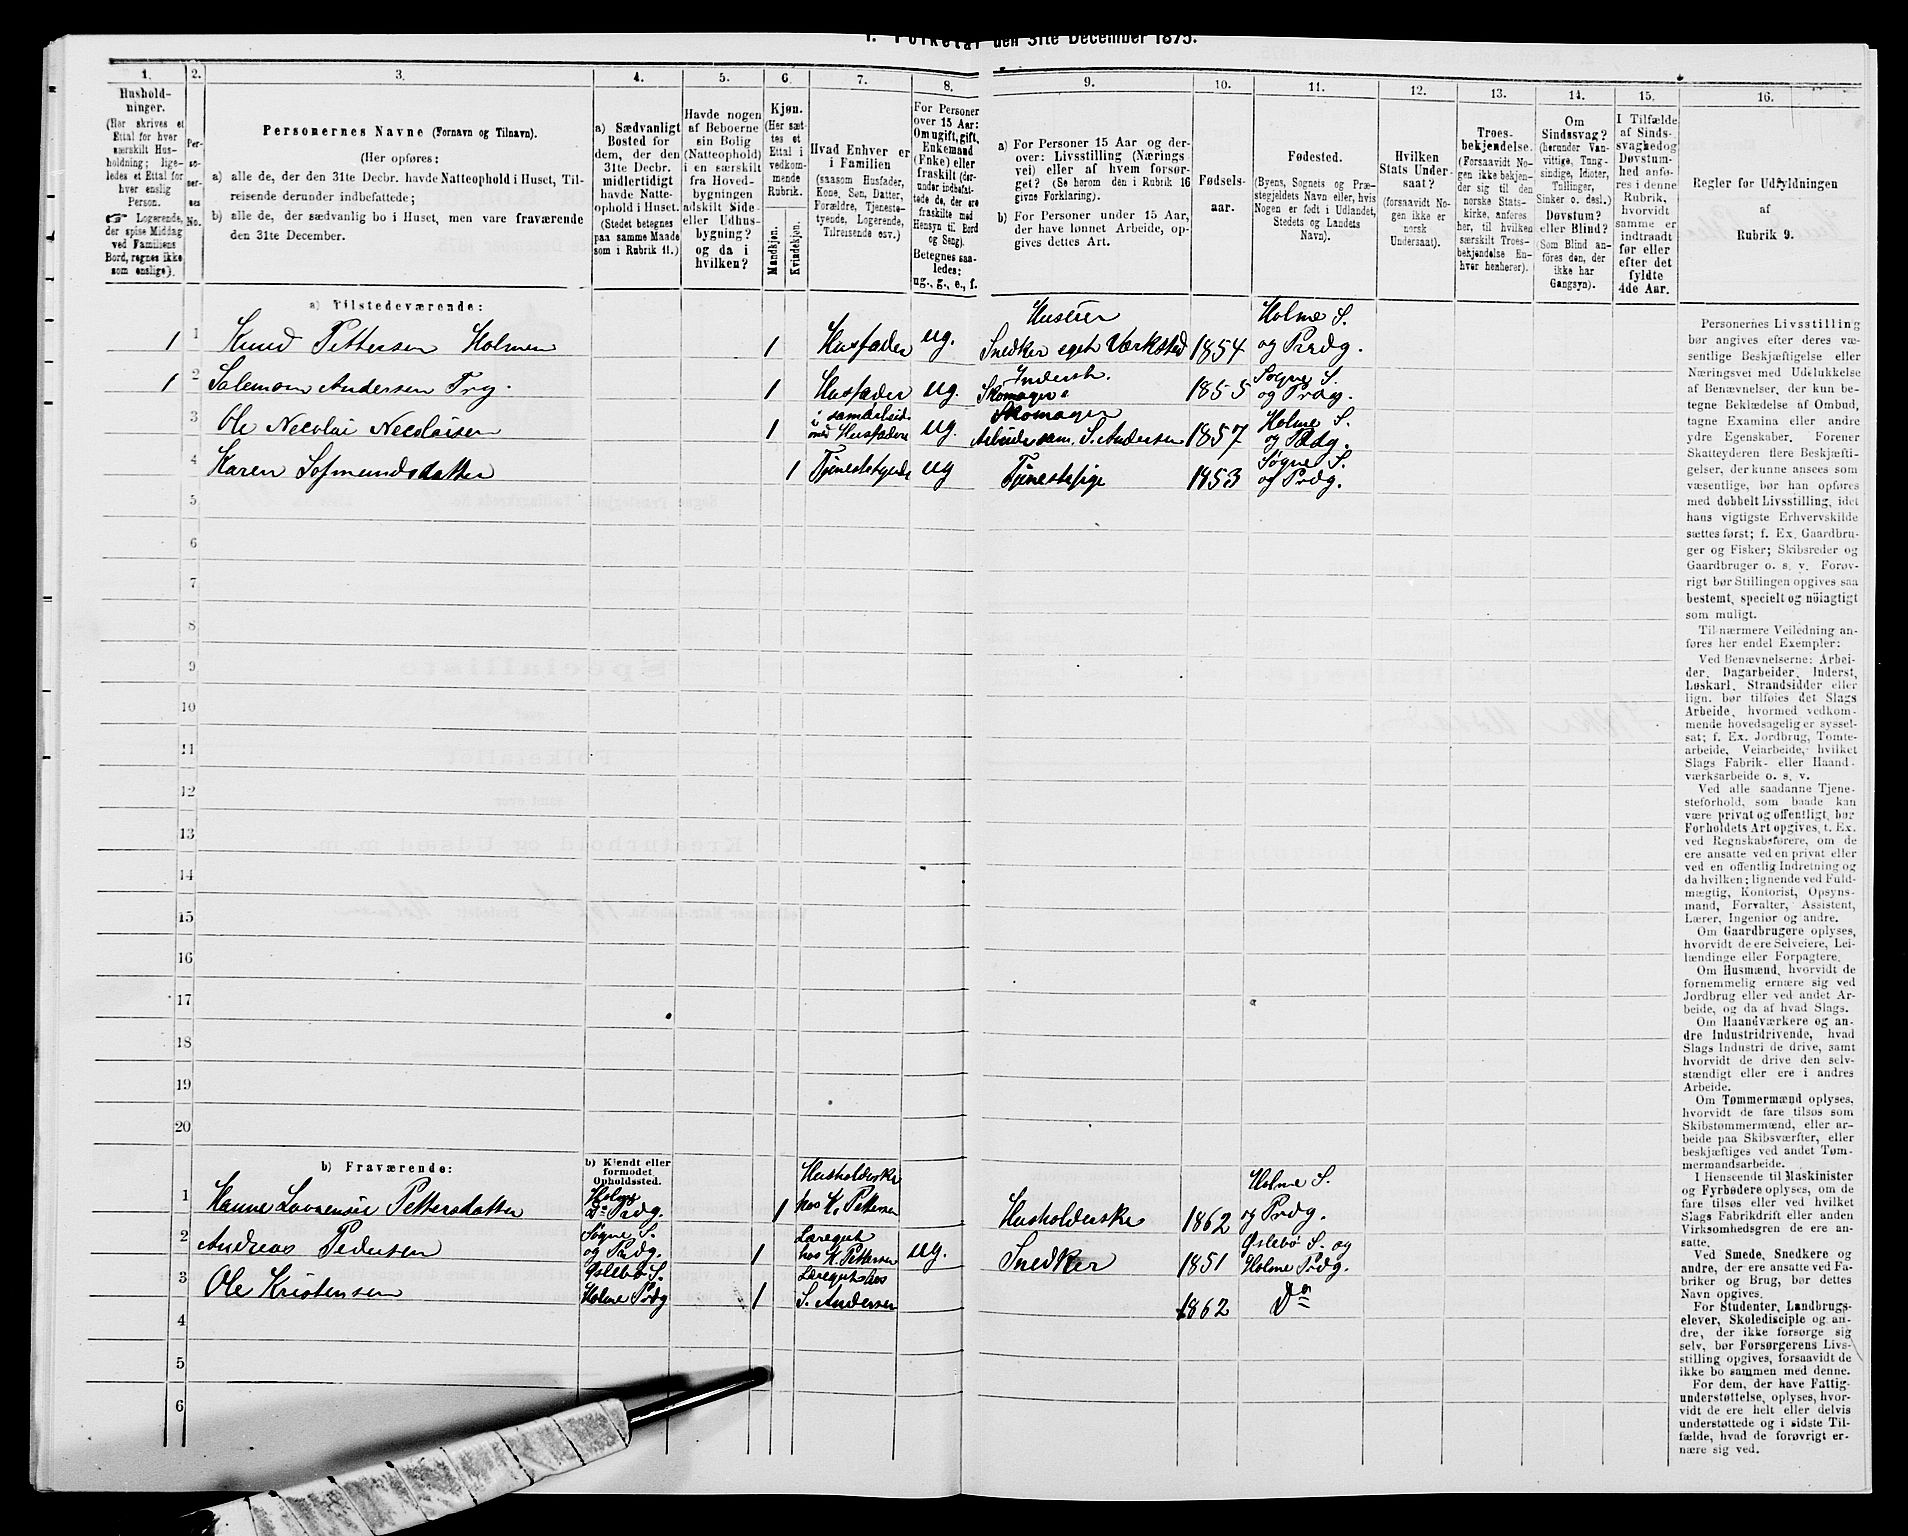 I. Folketal den 31te December 1875.
1.
Hushold-
ninger.
(Her skrives et
Ettal for hver
særskilt Hus-
holdning; lige-
ledes et Ettal for
hver enslig
Person.
Logerende,
der spise Middag
ved Familiens
Bord, regnes ikke
som enslige).
2.
Per-
so-
ner-
nes
No.
3.
Personernes Navne (Fornavn og Tilnavn).
(Her opføres:
a) alle de, der den 31te Decbr. havde Natteophold i Huset, Til-
reisende derunder indbefattede;
b) alle de, der sædvanlig bo i Huset, men vare fraværende
den 31te December.
4.
a) Sædvanligt
Bosted for
dem, der den
31te Decbr.
midlertidigt
havde Natte-
ophold i Huset.
(Stedet betegnes
paa samme Maade
som i Rubrik 11.)
5.
Havde nogen
af Beboerne
sin Bolig
(Natteophold)
i en særskilt
fra Hoved-
bygningen
adskilt Side-
eller Udhus-
bygning?
og da i
hvilken?
6.
Kjøn.
(Her sæt-
tes et
Ettal i
vedkom-
mende
Rubrik.
Mandkjøn.
Kvindekjøn.
7.
Hvad Enhver er
i Familien
(saasom Husfader,
Kone, Søn, Datter,
Forældre, Tjeneste-
tyende, Logerende,
Tilreisende osv.)
8.
For Personer
over 15 Aar:
Om ugift, gift,
Enkemand
(Enke) eller
fraskilt (der-
under indbefat-
tede de, der ere
fraskilte med
Hensyn til Bord
og Seng).
Betegnes saa-
ledes:
ug., g., e., f.
9.
a) For Personer 15 Aar og der-
over: Livsstilling (Nærings
vei) eller af hvem forsør-
get? (Se herom den i Rubrik 16
givne Forklaring).
b) For Personer under 15 Aar,
der have lønnet Arbeide, op-
gives dettes Art.
10.
Fødsels-
aar.
11.
Fødested.
(Byens, Sognets og Præ-
stegjeldets Navn eller, hvis
Nogen er født i Udlandet,
Stedets og Landets
Navn).
12.
Hvilken
Stats Under-
saat?
(forsaavidt No-
gen ikke er
norsk
Undersaat).
13.
Troes-
bekjendelse.
(Forsaavidt No-
gen ikke bekjen-
der sig til den
norske Stats-
kirke, anføres
her, til hvilken
særskilt Troes-
bekjendelse En-
hver henhører).
14.
Om
Sindssvag?
(herunder Van-
vittige, Tung-
sindige, Idioter,
Tullinger,
Sinker o. desl.)
Døvstum?
eller Blind?
(Som Blind an-
føres den, der
ikke har
Gangsyn).
15.
I Tilfælde
af Sinds-
svaghed og
Døvstum-
hed anfø-
res i denne
Rubrik,
hvorvidt
samme er
indtraadt
før eller
efter det
fyldte
4de Aar.
16.
Regler for Udfyldningen
af
Rubrik 9.
a) Tilstedeværende:
1 1 Knud Pettersen Holmen 1 Husfader ug. Huseier Snedker eget Værksted 1854 Holme S. og Prdg.
1 2 Salemon Andersen Try. 1 Husfader ug. Inderst. Skomager 1855 Søgne S. og Prdg.
3 Ole Necolai Necolaisen 1 i samarbeid med Husfadere ug. Skomager Arbeider sam. S. Andersen 1857 Holme S. og Prdg.
4 Karen Sofmundsdatter 1 Tjenestetyende ug Tjenestepige 1853 Søgne S. og Prdg.
5
6
7
8
9
10
11
12
13
14
15
16
17
18
19
20
b) Fraværende:
b) Kjendt eller
formodet
Opholdssted.
1 Hanne Lovrensie Pettersdatter Holme Do Prdg. 1 Husholderske hos K. Pettersen Husholderske 1862 Holme S. og Prdg.
2 Andreas Pedersen Søgne S. og Prdg. 1 Læregut hos K. Pettersen ug. Snedker 1851 Øslebø S. og Holme Prdg.
3 Ole Kristensen Øslebø S. Holme Prdg 1 Læregut hos S. Andersen 1862 Do
4
5
6
Personernes Livsstilling
bør angives efter deres væ-
sentlige Beskjæftigelse eller
Næringsvei med Udelukkelse
af Benævnelser, der kun be-
tegne Beklædelse af Ombud,
tagne Examina eller andre
ydre Egenskaber. Forener
Skatteyderen flere Beskjæfti-
gelser, der kunne ansees som
væsentlige, bør han opføres
med dobbelt Livsstilling, idet
hans vigtigste Erhvervskilde
sættes først; f. Ex. Gaardbru-
ger og Fisker; Skibsreder og
Gaardbruger o. s. v. Forøv-
rigt bør Stillingen opgives saa
bestemt, specielt og nöiagtigt
som muligt.
Til nærmere Veiledning an-
føres her endel Exempler:
Ved Benævnelserne: Arbei-
der, Dagarbeider, Inderst,
Løskarl, Strandsidder eller
lign. bør tilføies det Slags
Arbeide, hvormed vedkom-
mende hovedsagelig er syssel-
sat; f. Ex. Jordbrug, Tomte-
arbeide, Veiarbeide, hvilket
Slags Fabrik- eller Haand-
værksarbeide o. s. v.
Ved alle saadanne Tjene-
steforhold, som baade kan
være privat og offentligt, bør
Forholdets Art opgives, t. Ex.
ved Regnskabsførere, om de
ere ansatte ved en privat eller
ved en offentlig Indretning og
da hvilken; lignende ved Fuld-
mægtig, Kontorist, Opsyns-
mand, Forvalter, Assistent,
Lærer, Ingeniør og andre.
Om Gaardbrugere oplyses,
hvorvidt de ere Selveiere, Lei-
lændinge eller Forpagtere.
Om Husmænd, hvorvidt de
fornemmelig ernære sig ved
Jordbrug eller ved andet Ar-
beide, og da af hvad Slags.
Om Haandværkere og an-
dre Industridrivende, hvad
Slags Industri de drive, samt
hvorvidt de drive den selv-
stændigt eller ere i andres
Arbeide.
Om Tømmermænd oplyses,
hvorvidt de fare tilsøs som
Skibstømmermænd, eller ar-
beide paa Skibsværfter, eller
beskjæftiges ved andet Tøm-
mermandsarbeide.
I Henseende til Maskinister
og Fyrbødere oplyses, om de
fare tilsøs eller ved hvilket
Slags Fabrikdrift eller anden
Virksomhedsgren de ere an-
satte.
Ved Smede, Snedkere og
andre, der ere ansatte ved Fa-
briker og Brug, bør dettes
Navn opgives.
For Studenter, Landbrugs-
elever, Skoledisciple og an-
dre, der ikke forsørge sig
selv, bør Forsørgerens Livs-
stilling opgives, forsaavidt de
ikke bo sammen med denne.
For dem, der have Fattig-
understøttelse, oplyses, hvor-
vidt de ere helt eller delvis
understøttede og i sidste Til-
fælde, hvad de forøvrigt er-
nære sig ved.